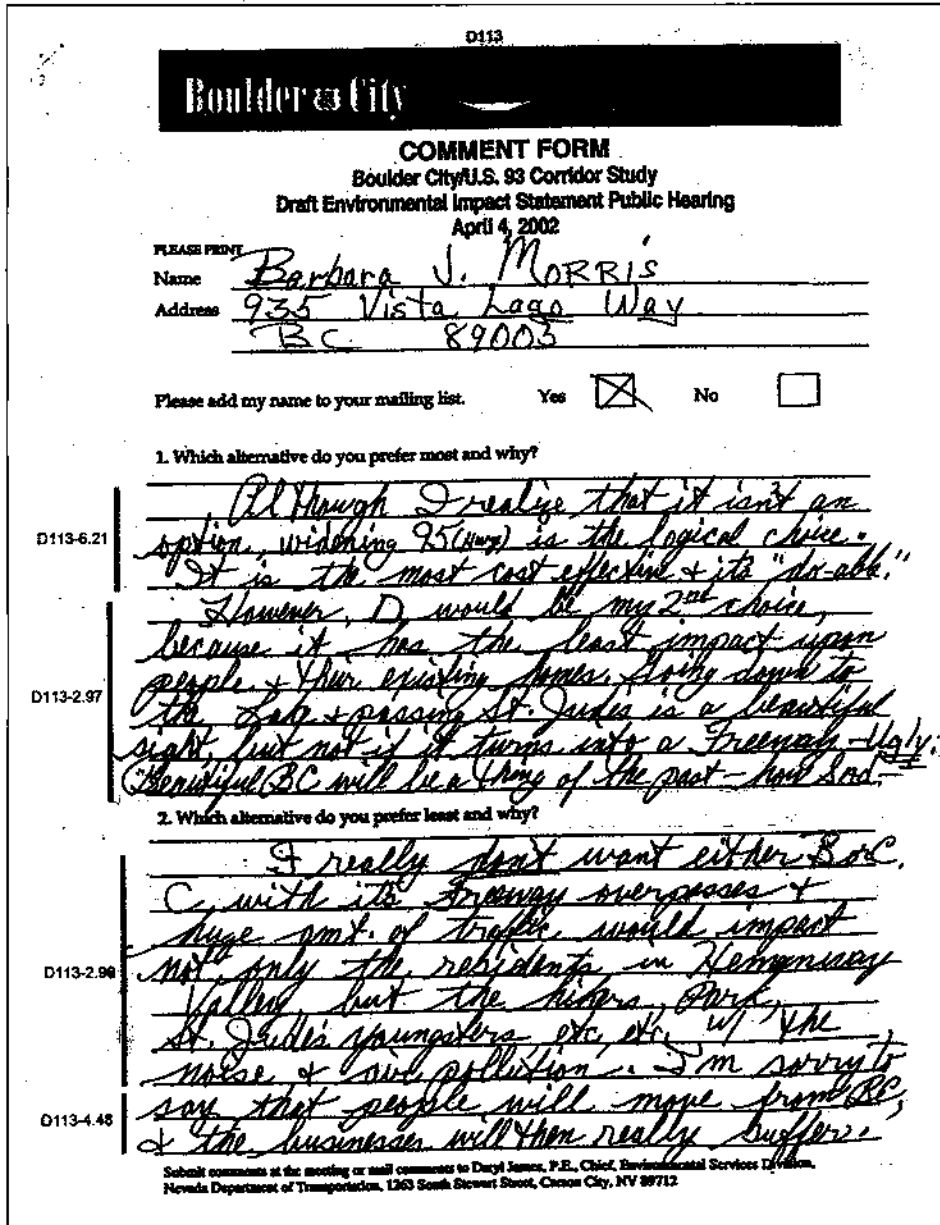 D113
Boulder City
COMMENT FORM
Boulder City/U.S. 93 Corridor Study
Draft Environmental Impact Statement Public Hearing
April 4, 2002
PLEASE PRINT
Name Barbara J. MORRIS
Address 935 Vista Lago Way
BC 89003
Please add my name to your mailing list. Yes No
1. Which alternative do you prefer most and why?
Although I realize that it isn't an
D113-6.21
option, widening 95 (Hwy) is the logical choice.
It is the most cost effective & it's "do-able."
However, D would be my 2nd choice,
because it has the least impact upon
people & their existing homes. Going down to
D113-2.97
the Lake & passing St. Judes is a beautiful
sight, but not if it turns into a Freeway - Ugly.
"Beautiful BC will be a thing of the past - how sad -
2. Which alternative do you prefer least and why?
I really don't want either B or C.
C, with it's Freeway overpasses &
huge amt. of traffic would impact
D113-2.98
not only the residents in Hemenway
Valley, but the hikers, Park,
St. Jude's youngsters etc, etc, w/ the
noise & air pollution. I'm sorry to
D113-4.48
say that people will move from BC,
& the businesses will then really suffer.
Submit comments at the meeting or mail comments to Daryl James, P.E., Chief, Environmental Services Division,
Nevada Department of Transportation, 1263 South Stewart Street, Carson City, NV 89712